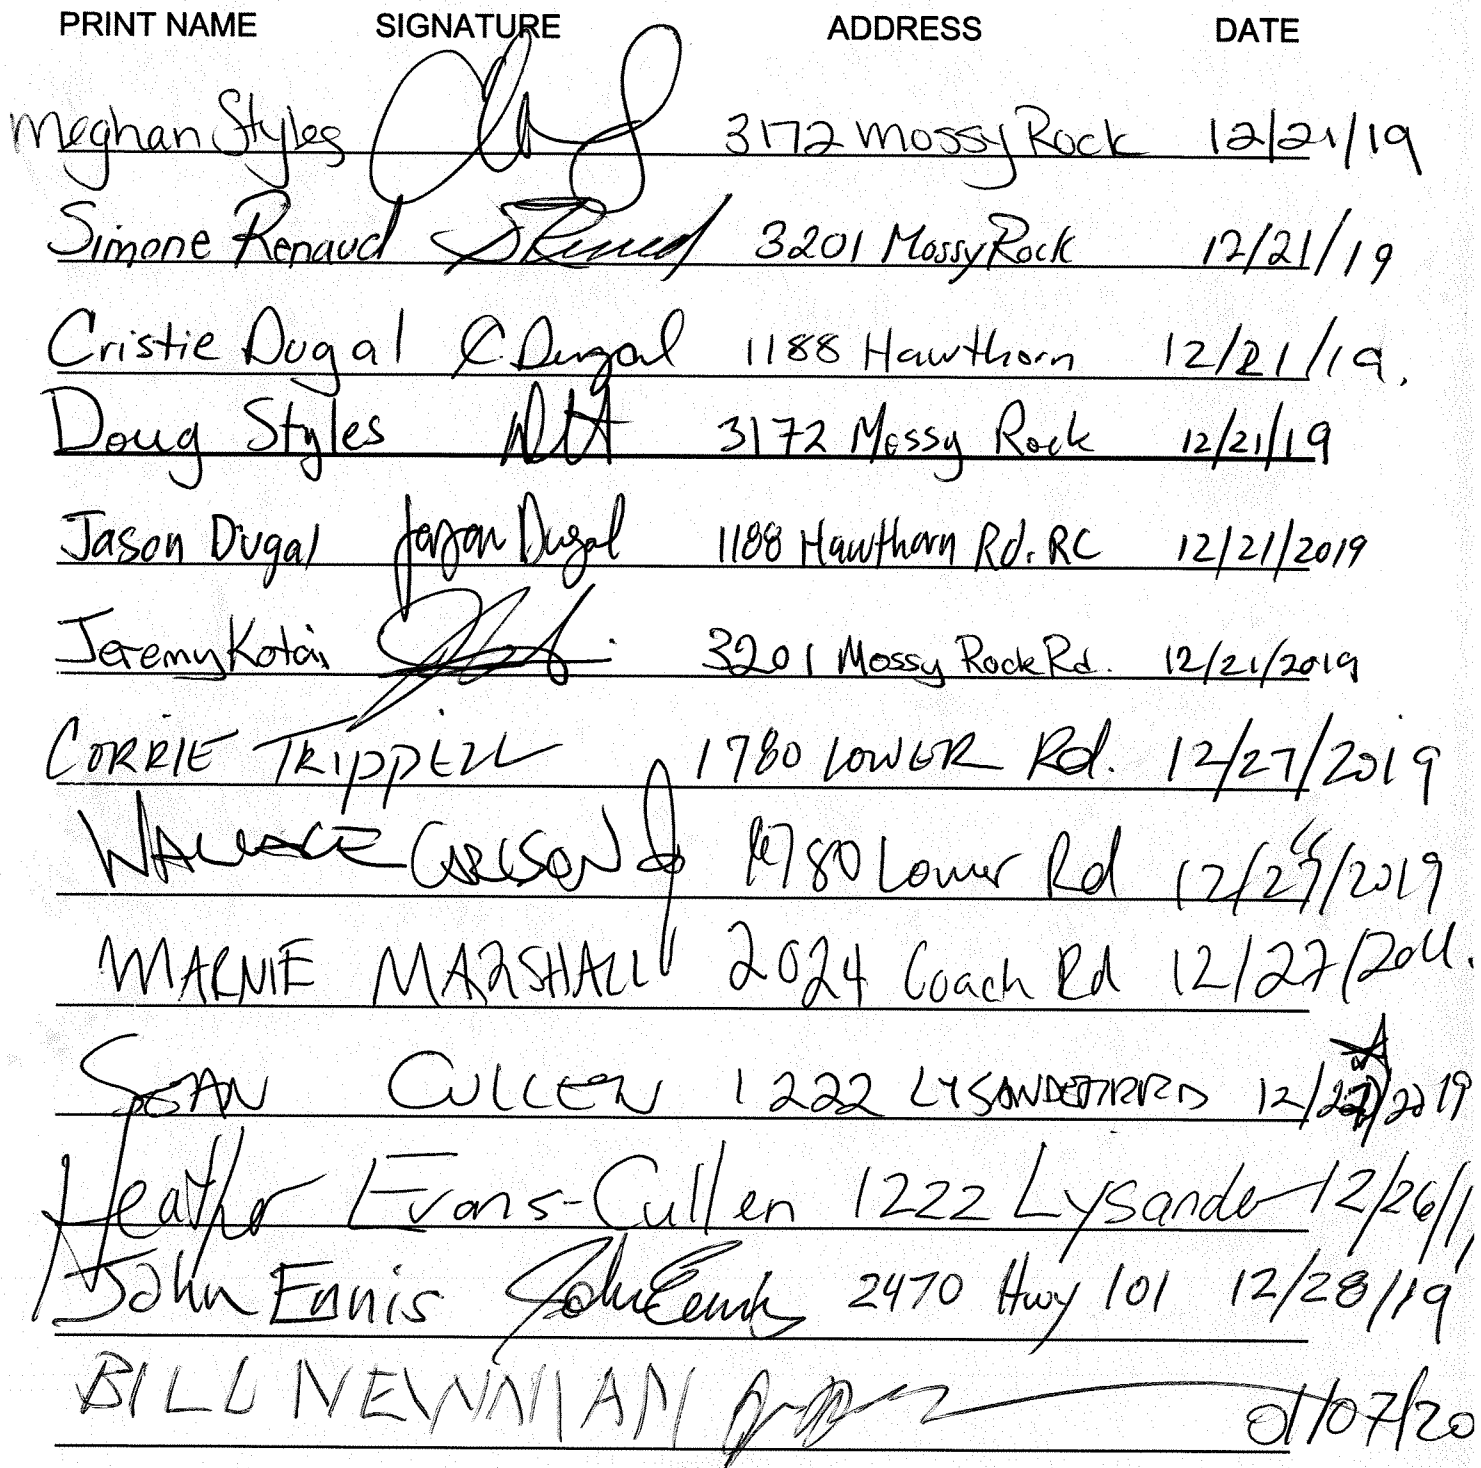 PRINT NAME SIGNATURE ADDRESS DATE
Meghan Styles 3172 Mossy Rock 12/21/19
Simone Renaud S Renaud 3201 Mossy Rock 12/21/19
Cristie Dugal C. Dugal 1188 Hawthorn 12/21/19.
Doug Styles 3172 Mossy Rock 12/21/19
Jason Dugal Jason Dugal 1188 Hawthorn Rd. RC 12/21/2019
Jeremy Kotai 3201 Mossy Rock Rd. 12/21/2019
CORRIE TRIPPELL 1780 LOWER Rd. 12/27/2019
WALLACE CARLSON 1780 Lower Rd
MARNIE MARSHALL 2024 Coach Rd
SEAN CULLEN 1222 LYSANDER RD
Heather Evans-Cullen 1222 Lysander 12/26/1
John Ennis John Ennis 2470 Hwy 101 12/28/19
BILL NEWMAN 01/07/20